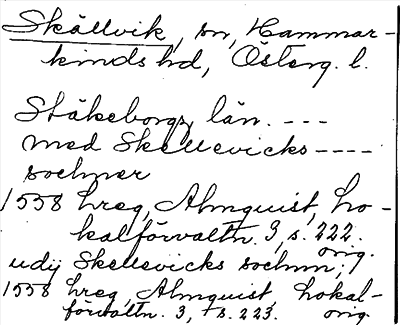 Skällvik, sn, Hammar-
kinds hd, Österg. l.
Stäkeborgs län. ---
med Skellevicks ----
sochner
1558 hreg, Almquist, Lo-
kalförvaltn. 3, s. 222.
orig.
udij Skellevicks sochnn;
1558 hreg, Almquist, Lokal-
förvaltn. 3, s. 223. orig.